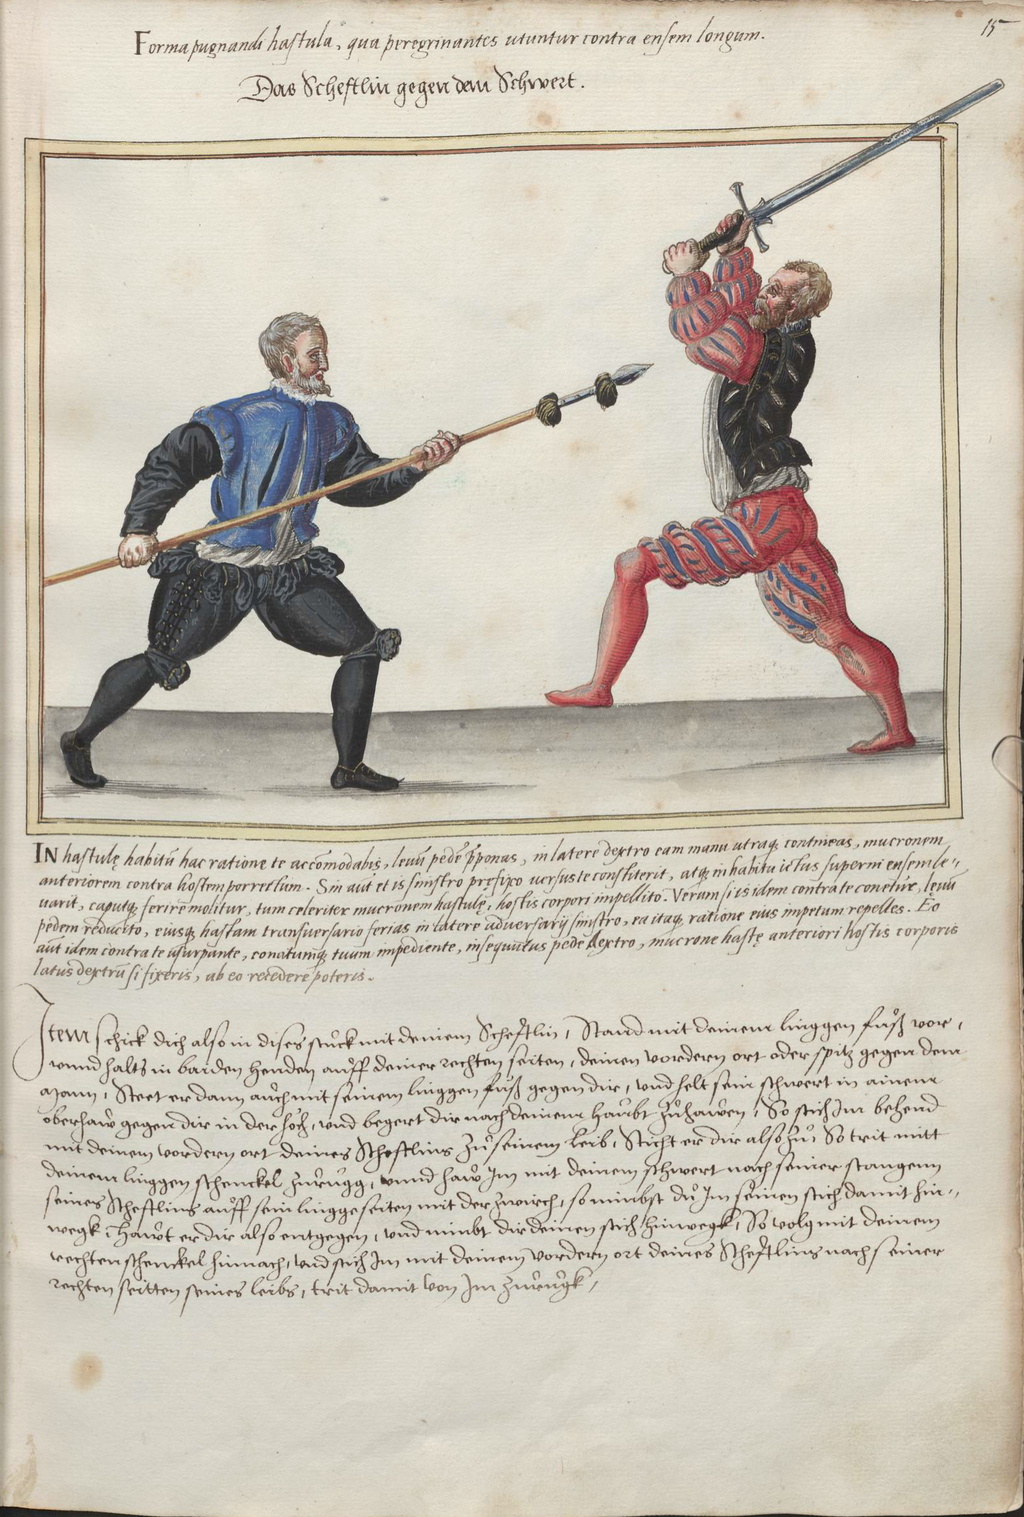 15
Forma pugnandi hastula, qua peregrinantes utuntur contra ensem longum.
Das Scheftlin gegen dem Schwert.
IN hastulę habitū hac ratione te accōmodabis, leuū pedē p̄ponas, in latere dextro eam manu utraq; contineas, mucronem
anteriorem contra hostem porrectum. Sin aūt et is sinistro prefixo uersus te constiterit, atq; in habitu ictus superni ensem le-
uarit, caputq; ferire molitur, tum celeriter mucronem hastulę, hostis corpori impellito. Verum si is idem contra te conetur, leuū
pedem reducito, eiusq; hastam transuersario ferias in latere aduersarij sinistro, ea itaq; ratione eius impetum repelles. Eo
aūt idem contra te usurpante, conatumq; tuum impediente, insequutus pede dextro, mucrone hastę anteriori hostis corporis
latus dextrū si fixeris, ab eo recedere poteris.
Item schick dich also in dises stuck mit deinem Scheftlin, Stand mit deinem linggen fuß vor,
unnd halts in baiden henden auff deiner rechten seiten, deinen vordern ort oder spitz gegen dem
mann, Steet er dann auch mit seinem linggen fuß gegen dir, und helt sein schwert in ainem
oberhaw gegen dir in der höch, und begert dir nach deinem haubt zuhawen, So stich Im behend
mit deinem vordern ort deines Scheftlins zu seinem leib, Sticht er dir also zu, So trit mitt
deinem linggen schenckel zurugg, unnd haw Im mit deinem schwert nach seiner stangenn
seines Scheftlins auff sein lingge seiten mit der zwirch, so nimbst du Im seinen stich damit hin-
wegk, hawt er dir also entgegen, und nimbt dir deinen stich hinwegk, So volg mit deinem
rechten schenckel hinnach, und stich Im mit deinem vordern ort deines Scheftlins nach seiner
rechten seitten seines leibs, trit damit von Im zurugk,